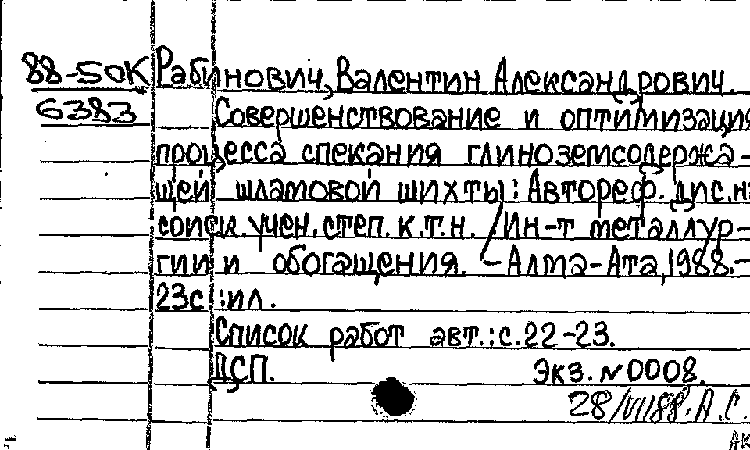 88-50К Рабинович, Валентин Александрович
6383 Совершенствование и оптимизация
процесса спекания глиноземсодержа-
щей шламовой шихты: Автореф. дис. н
соиск. учен. степ. к.т.н. / Ин-т металлур-
гии и обогащения. – Алма-Ата, 1988.–
23с.:ил.
Список работ авт.: с. 22-23.
ДСП. Экз. №0008.
28/VII88. А.С.
АК